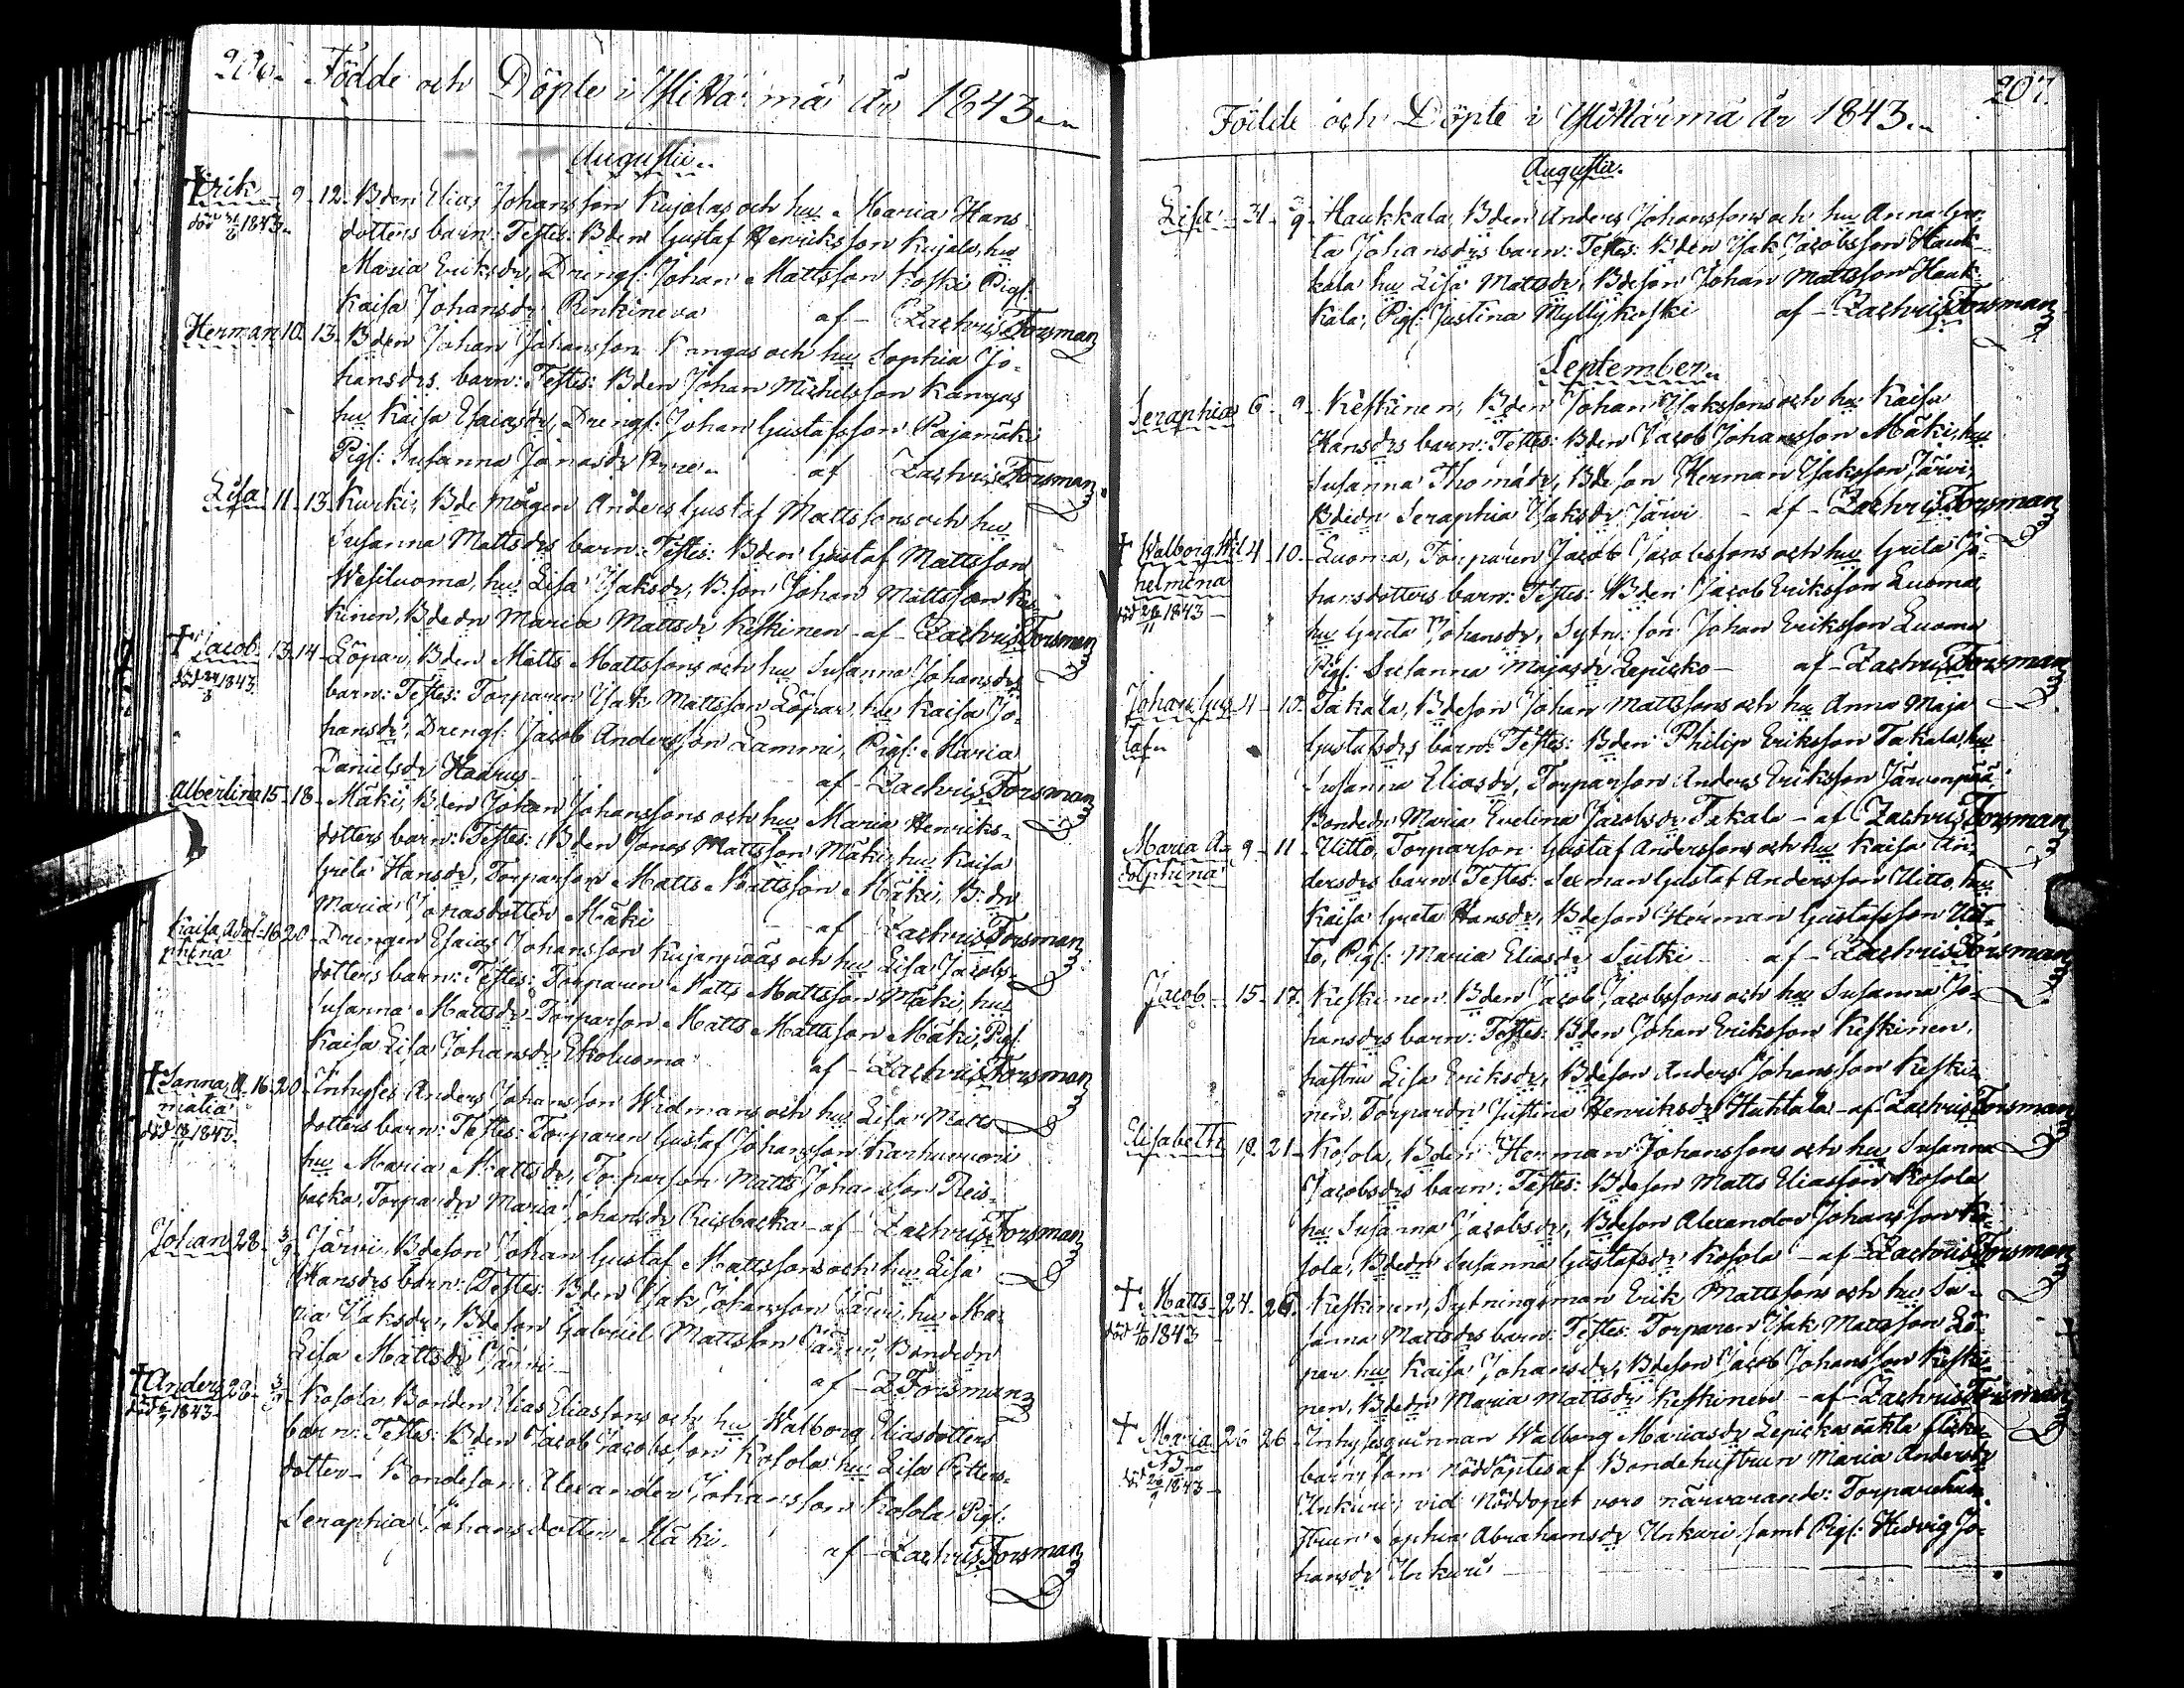 206. Födde och Döpte i Ylihärmä År 1843.
Augusti.
†Erik 9 12 Bden Elias Johansson Kujalas och hu Maria Hans
död 31/8 1843. dotters barn: Testes: Bden Gustaf Henriksson Kujala, hu
Maria Eriksdr, Drengs: Johan Mattsson Koski Pigs:
Kaisa Johansdr Renkineva af Zachris Forsman
Herman 10 13 Bden Johan Johansson Kangas och hu Sophia Jo-
hansdrs barn: Testes: Bden Johan Michelsson Kangas
hu Kaisa Esaiasdr, Drengs: Johan Gustafsson Pajamäki
Pigs: Susanna Jonasdr af Zachris Forsman
Lisa 11 13 Kurki, Bde mågen Anders Gustaf Mattssons och hu
Susanna Mattsdrs barn: Testes: Bden Gustaf Mattsson
Wesiluoma, hu Lisa Isaksdr, B.son Johan Mattsson Kes-
kinen, Bdedr Maria Mattsdr Keskinen af Zachris Forsman
†Jacob 13 14 Löpar, Bden Matts Mattssons och hu Susanna Johansdrs
död 24/8 1843. barn: Testes: Torparen Isak Mattsson Löpar, hu Kaisa Jo-
hansdr, Drengs: Jacob Andersson Lammi, Pigs: Maria
Danielsdr Haarus af Zachris Forsman
Albertina 15 18 Mäki, Bden Johan Johanssons och hu Maria Henriks-
dotters barn: Testes: Bden Jonas Mattsson Mäki, hu Kaisa
Greta Hansdr, Torparson Matts Mattsson Mäki, B:dr
Maria Jonasdotter Mäki af Zachris Forsman
Kaisa Adol- 16 20 Drengen Esaias Johansson Kujanpääs och hu Lisa Jacobs-
phina dotters barn: Testes: Torparen Matts Mattsson Mäki, hu
Susanna Mattsdr Torparson Matts Mattsson Mäki, Pigs:
Kaisa Lisa Johansdr Ekoluoma af Zachris Forsman
†Sanna A- 16 20 Inhyses Anders Johansson Widmans och hu Lisa Matts
malia dotters barn: Testes: Torparen Gustaf Johansson Karhuvuori
död 1843. hu Maria Mattsdr, Torparson Matts Johansson Reis-
backa, Torparedr Maria Johansdr Reisbacka af Zachris Forsman
Johan 28 3/9 Järvi, Bdeson Johan Gustaf Mattssons och hu Lisa
Hansdrs barn: Testes: Bden Isak Johansson Järvi, hu Ma-
ria Isaksdr, Bdeson Gabriel Mattsson Järvi, Bondedr
Lisa Mattsdr Järvi af Z Forsman
†Anders 28 3/9 Kosola Bonden Elias Eliassons och hu Walborg Eliasdotters
död 1843. barn: Testes: Bden Jacob Jacobsson Kosola hu Lisa Petters-
dotter Bondeson Alexander Johansson Kosola Pigs:
Seraphia Johansdotter Mäki af Zachris Forsman
207.
Födde och Döpte i Ylihärmä År 1843.
Augusti.
Lisa 31 3/9 Haukkala, Bden Anders Johanssons och hu Anna Gre-
ta Johansdrs barn: Testes: Bden Isak Jacobsson Hauk-
kala hu Lisa Mattsdr, Bdeson Johan Mattsson Hauk-
kala, Pigs: Justina Myllykoski af Zachris Forsman
September
Seraphia 6 9 Keskinen, Bden Johan Isakssons och hu Kaisa
Hansdrs barn: Testes: Bden Jacob Johansson Mäki, hu
Susanna Thomædr, Bdeson Herman Isaksson Järvi,
Bdedr Seraphia Isaksdr Järvi af Zachris Forsman
† Walborg Wil- 4 10 Luoma, Torparen Jacob Jacobssons och hu Greta Jo-
helmina hansdotters barn: Testes: Bden Jacob Eriksson Luoma,
död 26/11 1843 hu Greta Johansdr, Sytn: son Johan Eriksson Luoma
Pigs: Susanna Majasdr Lepisko af Zachris Forsman
Johan Gus- 4 10 Takala, Bdeson Johan Mattssons och hu Anna Maja
taf Gustafsdrs barn: Testes: Bden Philip Eriksson Takala, hu
Susanna Eliasdr, Torparson Anders Eriksson Järvenpää,
Bondedr Maria Evelina Jacobsdr Takala af Zachris Forsman
Maria A- 9 11 Uitto, Torparson Gustaf Anderssons och hu Kaisa An-
dolphina dersdrs barn: Testes: Sexman Gustaf Andersson Uitto, hu
Kaisa Greta Hansdr, Bdeson Herman Gustafsson Uit-
to, Pigs: Maria Eliasdr Sulki af Zachris Forsman
Jacob 15 17 Keskinen, Bden Jacob Jacobssons och hu Susanna Jo-
hansdrs barn: Testes: Bden Johan Eriksson Keskinen,
hustru Lisa Eriksdr, Bdeson Anders Johansson Keski-
nen, Torpardr Justina Henriksdr Huhtala af Zachris Forsman
Elisabeth 19 21 Kosola, Bden Herman Johanssons och hu Susanna
Jacobsdrs barn: Testes: Bdeson Matts Eliasson Kosola
hu Susanna Jacobsdr, Bdeson Alexander Johansson Ko-
sola, Bdedr Susanna Gustafsdr Kosola af Zachris Forsman
† Matts 24 26 Keskinen, Sytningsman Erik Mattssons och hu Su-
död 1843 sanna Mattsdrs barn: Testes: Torparen Isak Mattsson Lö-
par hu Kaisa Johansdr, Bdeson Jacob Johansson Keski-
nen, Bdedr Maria Mattsdr Keskinen af Zachris Forsman
† Maria 26 26 Inhysesqvinnan Walborg Mariasdr Lepiskas oäkta flicke
död 1843 barn, som nöddöptes af Bondehustrun Maria Andersdr
Unkuri; vid Nöddopet voro närvarande: Torparehu-
strun Sophia Abrahamsdr Unkuri samt Pigs: Hedvig Jo-
hansdr Unkuri